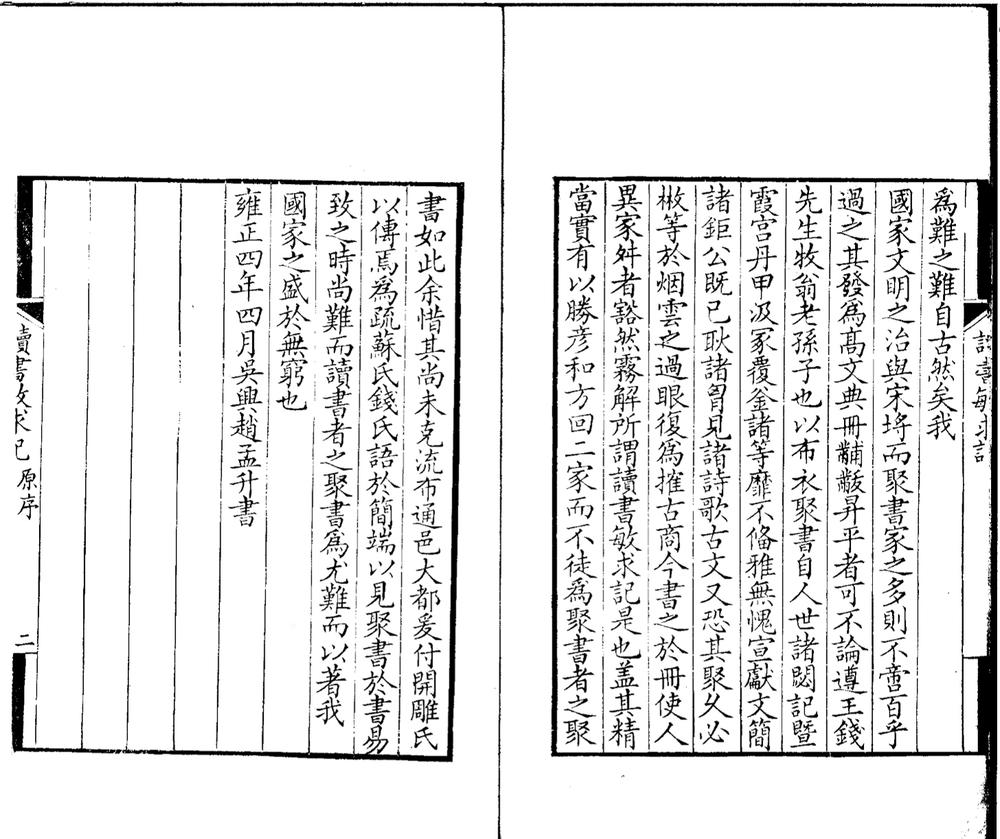 讀書敏求記
爲難之難自古然矣我
國家文明之治與宋埒而聚書家之多則不啻百乎
過之其發爲高文典冊黼黻昇平者可不論遵王錢
先生牧翁老孫子也以布衣聚書自人世諸閟記曁
霞宫丹甲汲冢覆釜諸等靡不偹雅無愧宣獻文簡
諸鉅公既已耿諸胷見諸詩歌古文又恐其聚乆必
散等於烟雲之過眼復爲搉古商今書之於冊使人
異家舛者豁然霧解所謂讀書敏求記是也盖其精
當實有以勝彦和方回二家而不徒爲聚書者之聚
書如此余惜其尚未克流布通邑大都爰付開雕氏
以傳焉爲疏蘇氏錢氏語於簡端以見聚書於書易
致之時尚難而讀書者之聚書爲尤難而以著我
國家之盛於無窮也
雍正四年四月吳興趙孟升書
讀書敏求記 原序
二